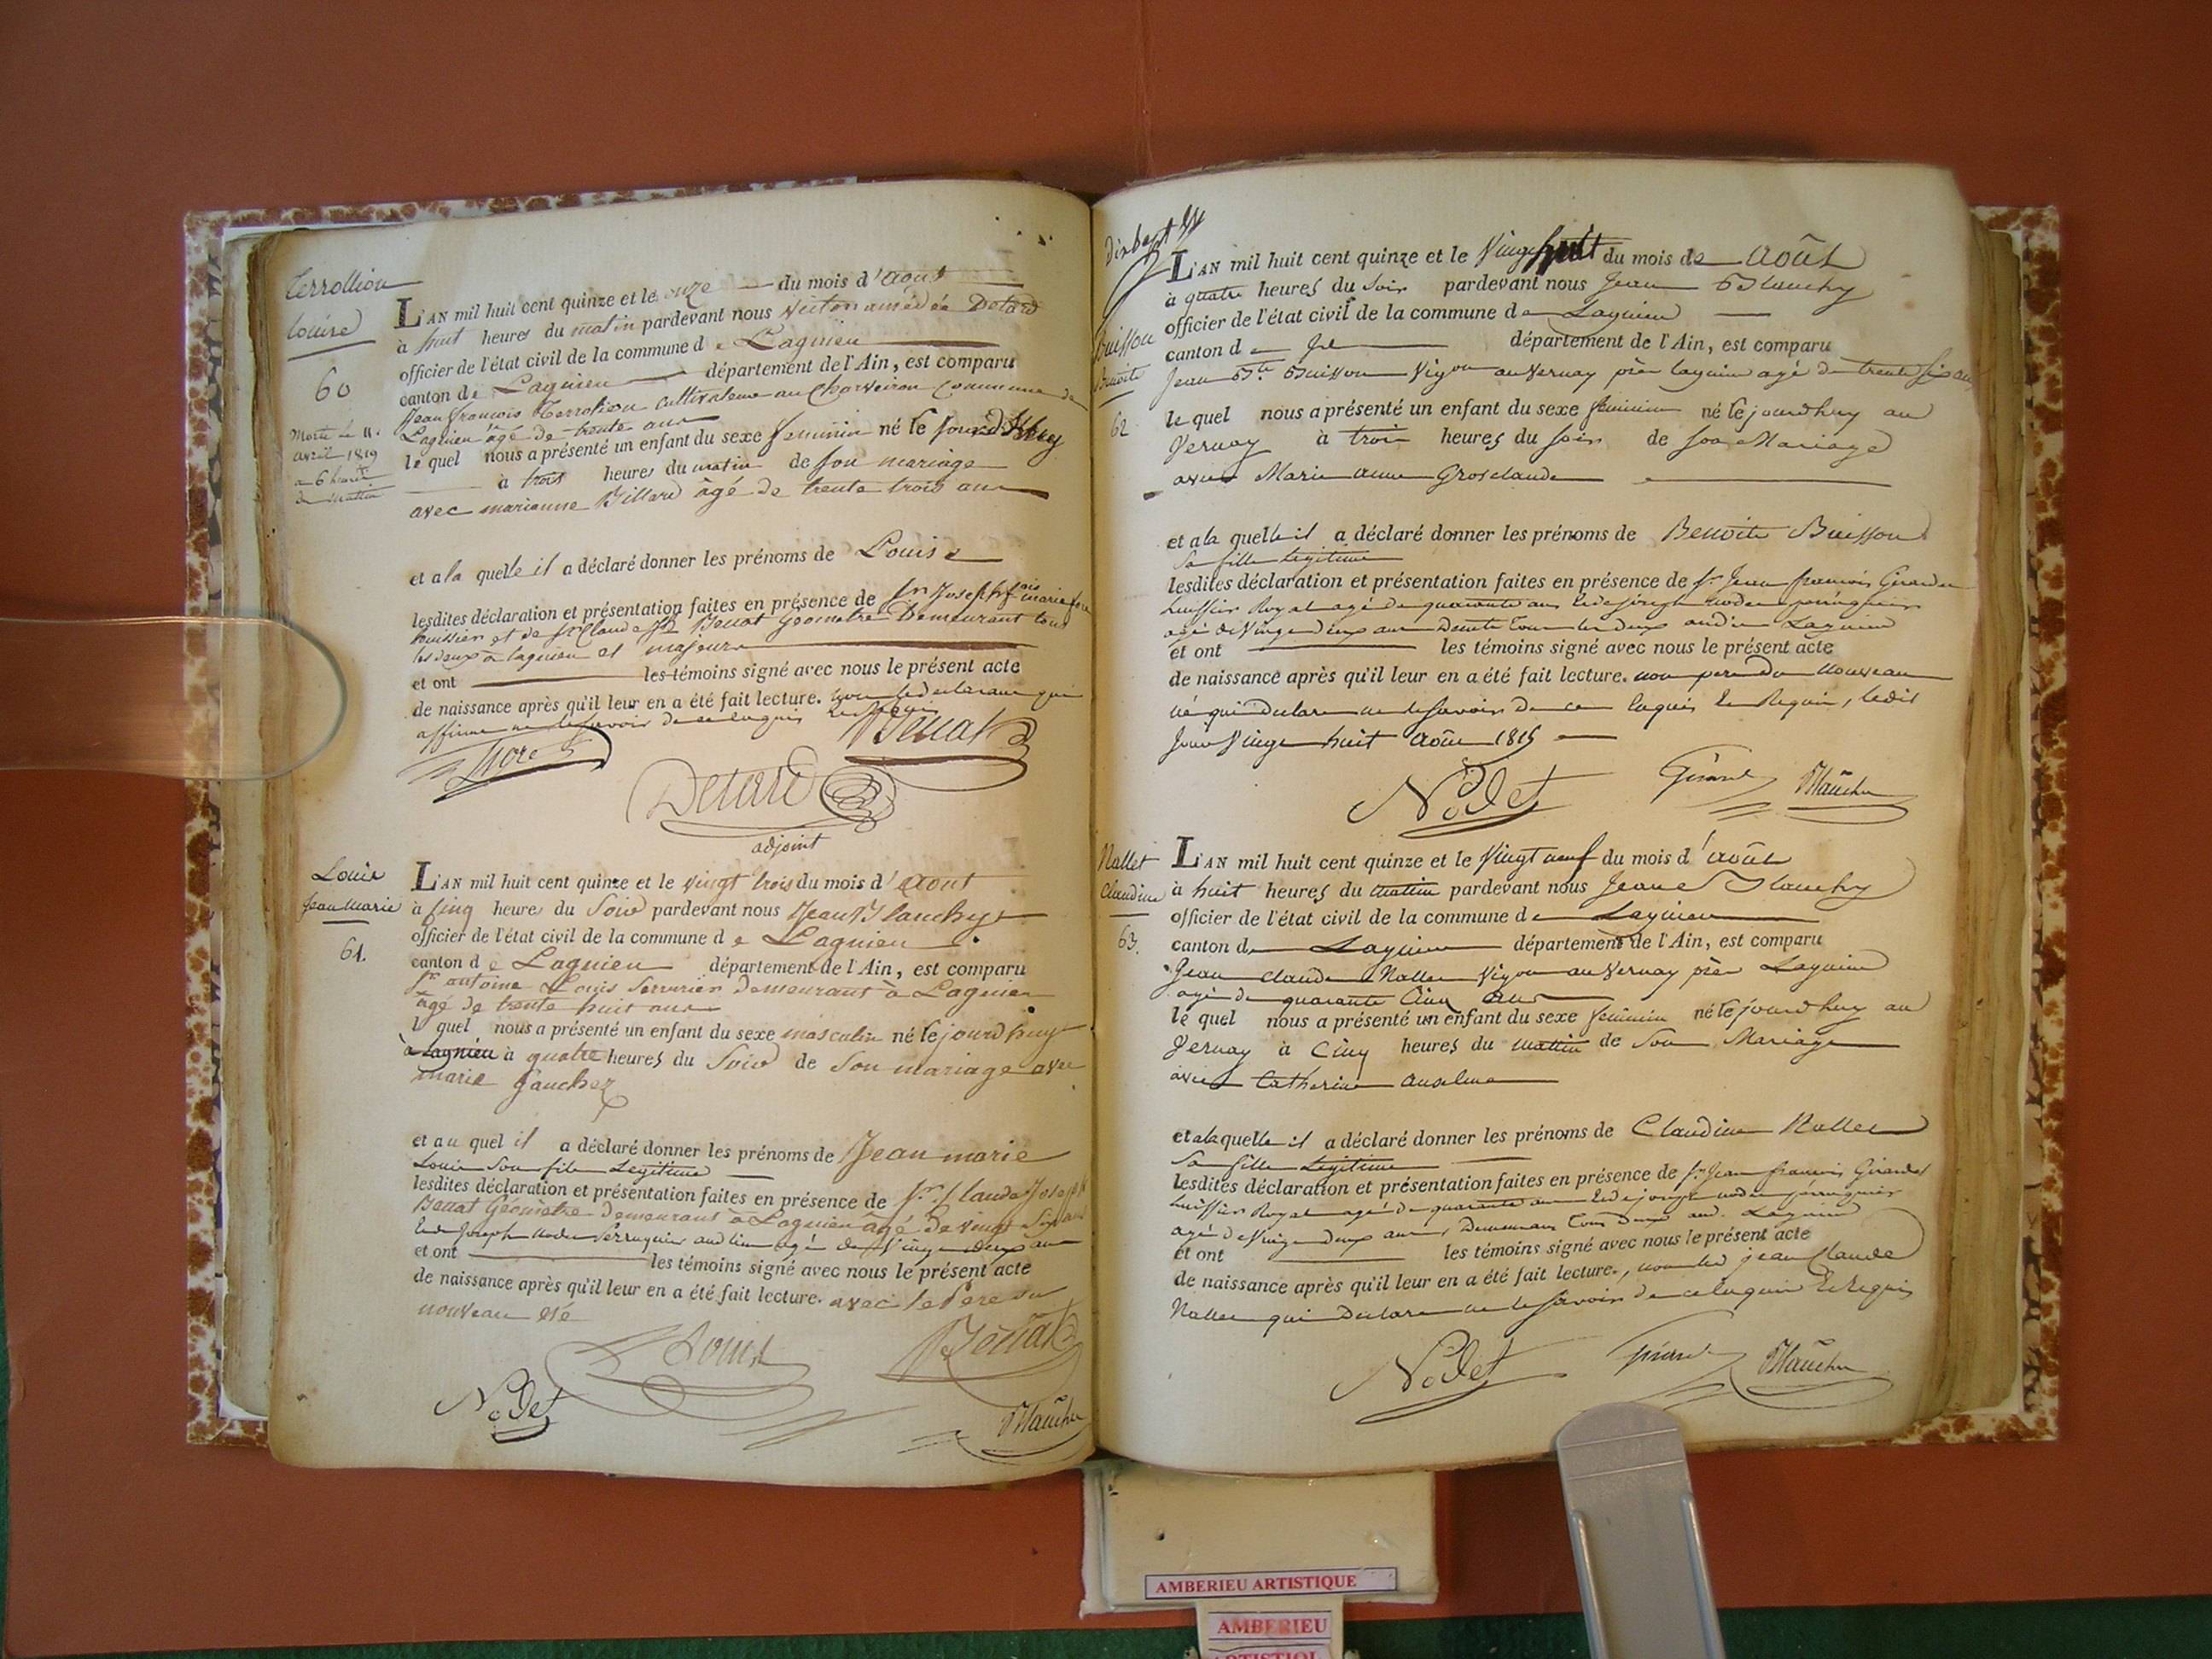 Terrollion
Louise
60
Morte le 11.
avril 1819
a 6 heures
du matin
L'AN mil huit cent quinze et le onze du mois d'Aout
à huit heures du matin pardevant nous Victor amédée Detard
officier de l'état civil de la commune de Lagnieu
canton de Lagnieu département de l'Ain, est comparu
Jean françois Terrollion cultivateur au Charveiron Commune de
Lagnieu âgé de trente ans
le quel nous a présenté un enfant du sexe feminin né le jourd'huy
à trois heures du matin de son mariage
avec marianne Billard âgé de trente trois ans
et a la quelle il a déclaré donner les prénoms de Louise
lesdites déclaration et présentation faites en présence de Sr Joseph marie
huissier et de Sr Claude Jh Benat Géometre Demeurant tous
les deux à lagnieu et majeurs
et ont les témoins signé avec nous le présent acte
de naissance après qu'il leur en a été fait lecture. non le declarant qui
affirme ne le savoir de ce enquis
Benat
Detard
adjoint
Louis
Jean Marie
61.
L'AN mil huit cent quinze et le vingt trois du mois d'Aout
à cinq heures du Soir pardevant nous Jean Blanchy
officier de l'état civil de la commune de Lagnieu
canton de Lagnieu département de l'Ain, est comparu
Sr antoine Louis Serrurier demeurant à Lagnieu
âgé de trente huit ans
le quel nous a présenté un enfant du sexe masculin né le jourd'huy
à Lagnieu à quatre heures du Soir de Son mariage avec
marie Gauchez
et au quel il a déclaré donner les prénoms de Jean marie
Louis Son fils Legitime
lesdites déclaration et présentation faites en présence de Sr Claude Joseph
Benat Géomètre demeurant à Lagnieu âgé de vingt Six ans
Et de Joseph Nodet Perruquier audit lieu agé de Vingt deux ans
et ont les témoins signé avec nous le présent acte
de naissance après qu'il leur en a été fait lecture. avec le Pere du
nouveau né
Louis Benat
Nodet Blanchy
Buisson
Benoite
62
L'AN mil huit cent quinze et le Vingt huit du mois de Août
à quatre heures du Soir pardevant nous Jean Blanchy
officier de l'état civil de la commune de Lagnieu
canton de département de l'Ain, est comparu
Jean Bte Buisson Vigon au Vernay près lagnieu agé de trente six ans
le quel nous a présenté un enfant du sexe feminin né le jourdhuy au
Vernay à trois heures du soir de son Mariage
avec Marie anne Grosclaude
et a la quelle il a déclaré donner les prénoms de Benoite Buisson
Sa fille legitime
lesdites déclaration et présentation faites en présence de Sr Jean francois Girardet
huissier Royal agé de quarante ans Et de joseph nodet perruquier
agé de Vingt deux ans Demt tous les deux audit Lagnieu
et ont les témoins signé avec nous le présent acte
de naissance après qu'il leur en a été fait lecture. non pere du Nouveau
né qui declare ne le savoir de ce enquis Et Requis, ledit
Jour Vingt huit Août 1815
Nodet Girard Blanchy
Nallet
Claudine
63.
L'AN mil huit cent quinze et le Vingt neuf du mois d'août
à huit heures du matin pardevant nous Jean Blanchy
officier de l'état civil de la commune de Lagnieu
canton de Lagnieu département de l'Ain, est comparu
Jean claude Nallet Vigon au Vernay près Lagnieu
agé de quarante Cinq ans
le quel nous a présenté un enfant du sexe feminin né le jourdhuy au
Vernay à Cinq heures du mattin de Son Mariage
avec Catherine anselme
et a la quelle il a déclaré donner les prénoms de Claudine Nallet
Sa fille Legitime
lesdites déclaration et présentation faites en présence de Sr Jean francois Girardet
huissier Royal agé de quarante ans Et de joseph nodet perruquier
agé de Vingt deux ans, Demeurans tous deux aud. Lagnieu
et ont les témoins signé avec nous le présent acte
de naissance après qu'il leur en a été fait lecture., non led jean Claude
Nallet qui Declare ne le savoir de ce enquis Et Requis
Nodet Girard Blanchy
AMBERIEU ARTISTIQUE
AMBERIEU
ARTISTIQU